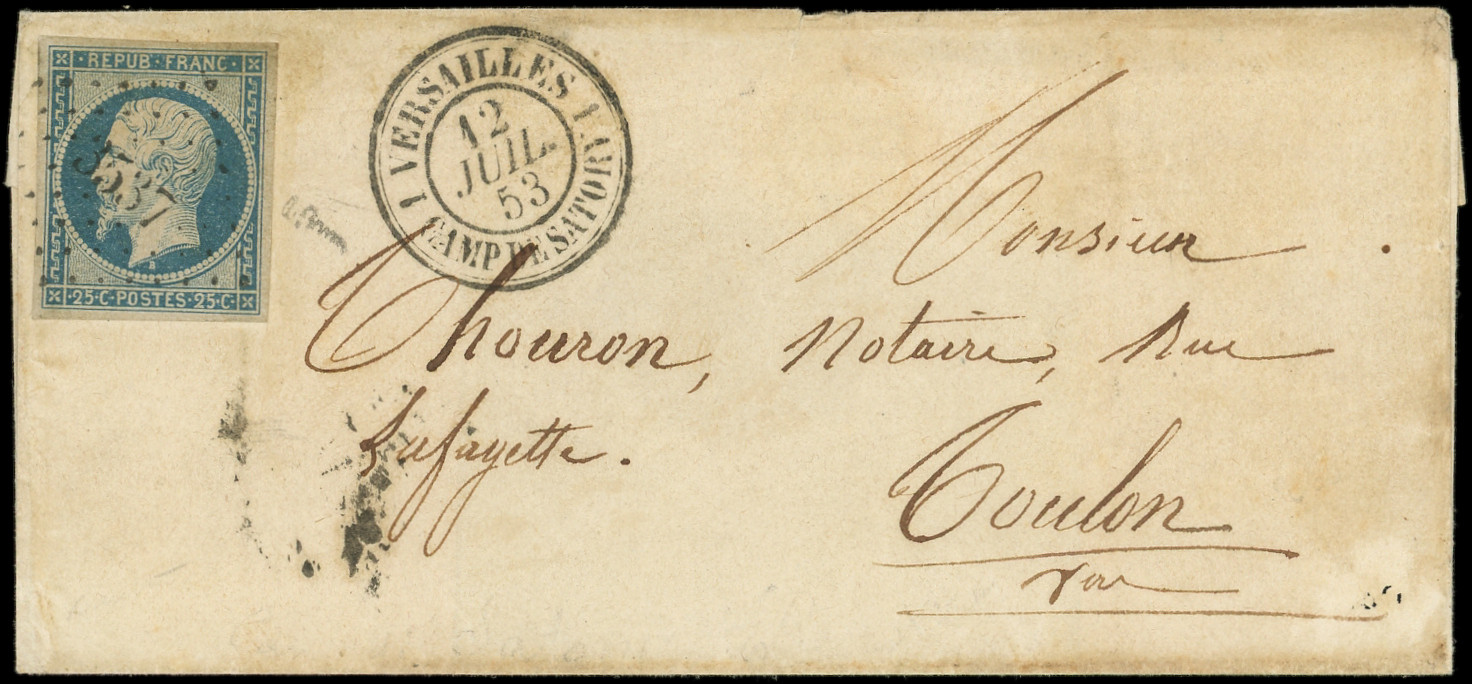 · REPUB · FRANC ·
3537
B
· 25 · C · POSTES · 25 · C ·
1 VERSAILLES 1
12
JUIL.
53
CAMP DE SATORY
Monsieur
Thouron, Notaire, Rue
Lafayette.
Toulon
Var